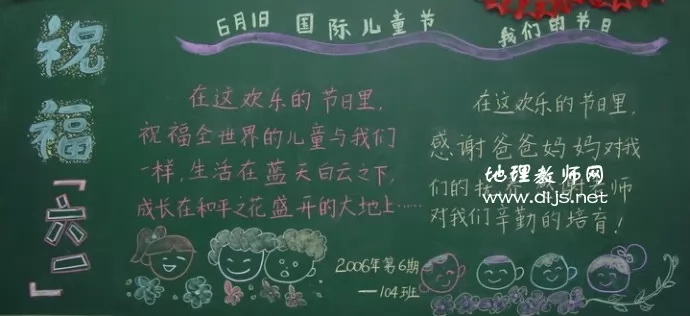 祝福「六一」
6月1日 国际儿童节 我们的节日
在这欢乐的节日里,
祝福全世界的儿童与我们
一样,生活在蓝天白云之下,
成长在和平之花盛开的大地上……
在这欢乐的节日里,
感谢爸爸妈妈对我
们的抚养 师
对我们辛勤的培育!
地理教师网
www.dljs.net
2006年第6期
—104班